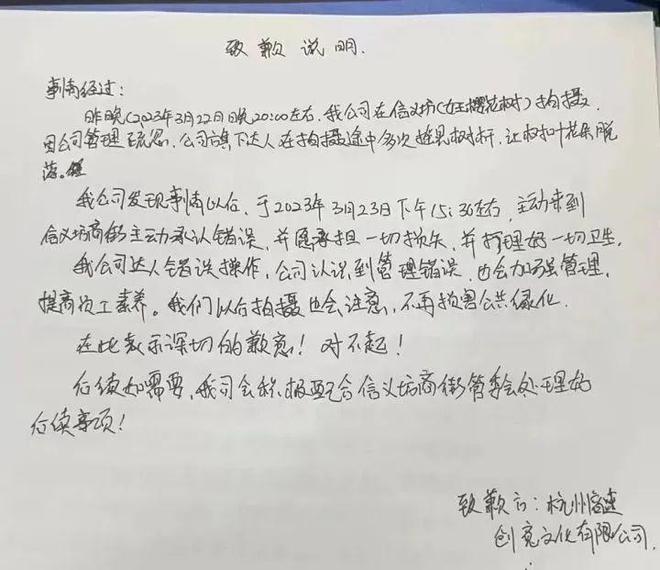 致歉说明.
事情经过:
昨晚(2023年3月22日晚20:00左右,我公司在信义坊(女王樱花树)拍摄.
因公司管理疏忽.公司旗下达人在拍摄途中多次摇晃树杆,让树叶花朵脱
落。
我公司发现事情以后,于2023年3月23日下午15:30左右,主动来到
信义坊商街主动承认错误,并愿承担一切损失,并打理好一切卫生.
我公司达人错误操作,公司认识到管理错误.也会加强管理,
提高员工素养。我们以后拍摄也会注意,不再损害公共绿化.
在此表示深切的歉意!对不起!
后续如需要,我司会积极配合信义坊商街管委会处理好
后续事项!
致歉方:杭州
创意文化有限公司.